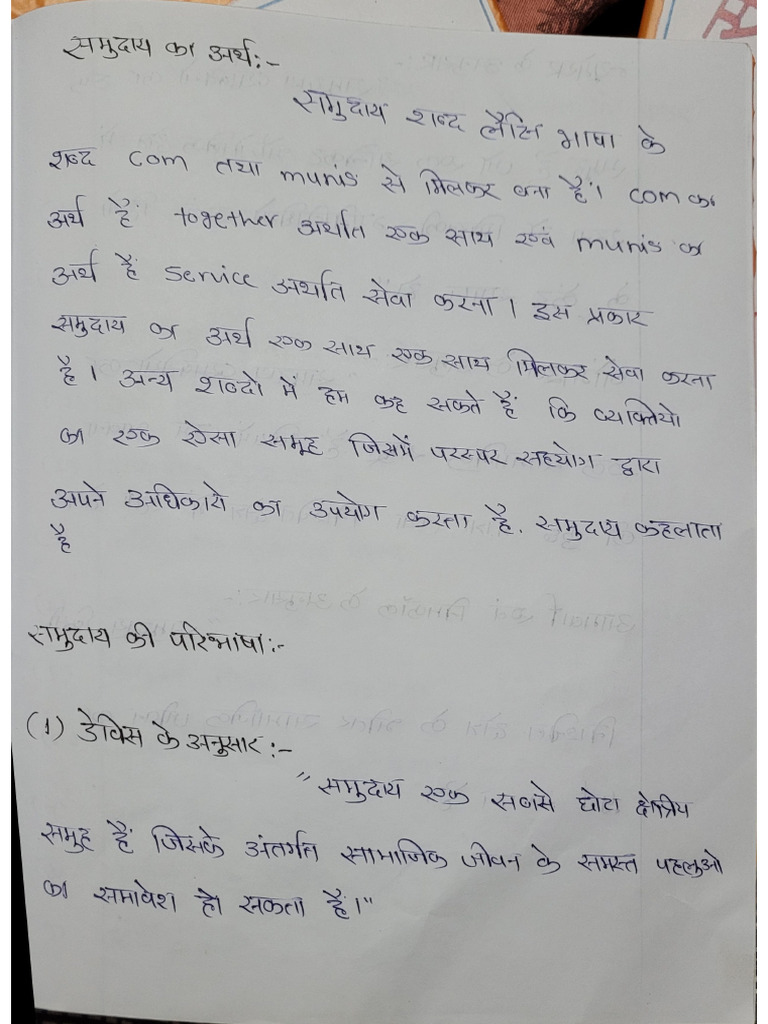 समुदाय का अर्थ:-
समुदाय शब्द लैटि भाषा के
शब्द com तथा munis से मिलकर बना है। com का
अर्थ हैं together अर्थात एक साथ एवं munis का
अर्थ हैं service अर्थात सेवा करना। इस प्रकार
समुदाय का अर्थ एक साथ एक साथ मिलकर सेवा करना
है। अन्य शब्दो में हम कह सकते हैं कि व्यक्तियो
का एक ऐसा समूह जिसमें परस्पर सहयोग द्वारा
अपने अधिकारो का उपयोग करता है. समुदाय कहलाता
है
समुदाय की परिभाषा:-
(1) डेविस के अनुसार:-
"समुदाय एक सबसे छोटा क्षेत्रीय
समूह हैं जिसके अंतर्गत सामाजिक जीवन के समस्त पहलुओ
का समावेश हो सकता हैं।"